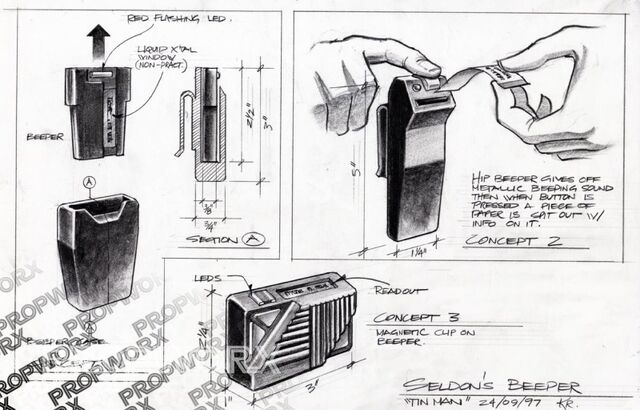 RED FLASHING LED.
LIQUID X'TAL
WINDOW
(NON-PRACT.)
BEEPER
2 1/2"
3"
A
3/8"
3/4"
SECTION A
A
BEEPER CASE
PROPWORX
PROPWORX
PROPWORX
PROPWORX
PROPWORX
5"
1 1/4"
HIP BEEPER GIVES OFF
METALLIC BEEPING SOUND
THEN WHEN BUTTON IS
PRESSED A PIECE OF
PAPER IS SPIT OUT W/
INFO ON IT.
CONCEPT 2
LEDS
READOUT
CONCEPT 3
MAGNETIC CLIP ON
BEEPER.
2 1/4"
1"
3"
SELDON'S BEEPER
"TIN MAN" 24/09/97 KR.